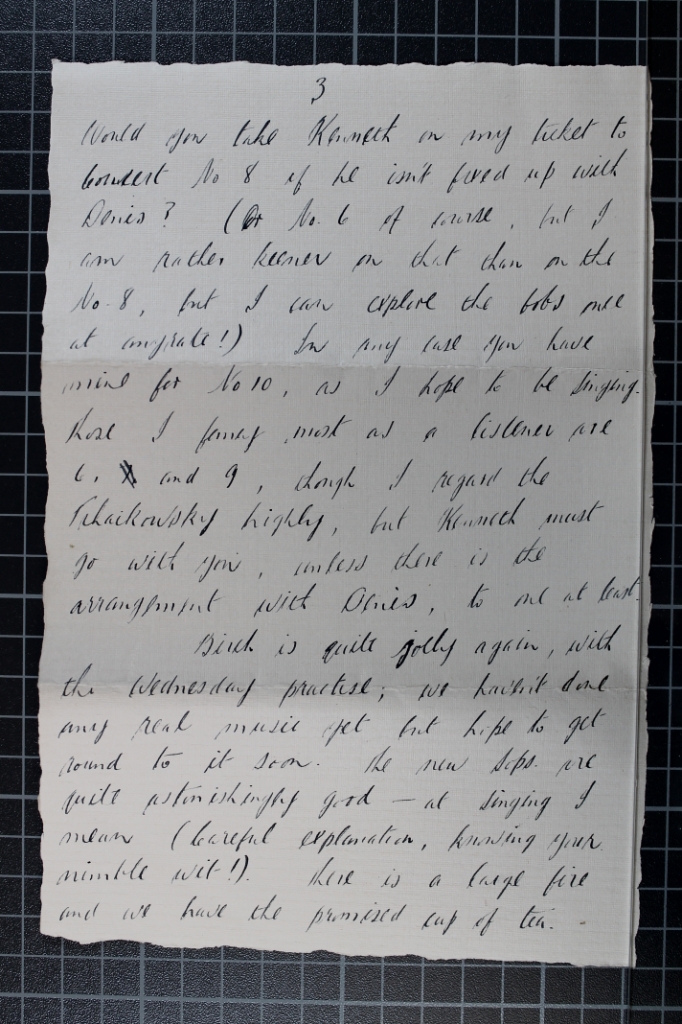 3
Would you take Kenneth on my ticket to
Concert No 8 if he isn't fixed up with
Denis? (Or No. 6 of course, but I
am rather keener on that than on the
No. 8, but I can explore the bobs once
at anyrate!) In any case you have
mine for No 10, as I hope to be singing.
Those I fancy most as a listener are
6, and 9, though I regard the
Tchaikowsky highly, but Kenneth must
go with you, unless there is the
arrangement with Denis, to one at least.
Birch is quite jolly again, with
the Wednesday practise; we haven't done
any real music yet but hope to get
round to it soon. The new Sops. are
quite astonishingly good — at singing I
mean (Careful explanation, knowing your
nimble wit!). There is a large fire
and we have the promised cup of tea.